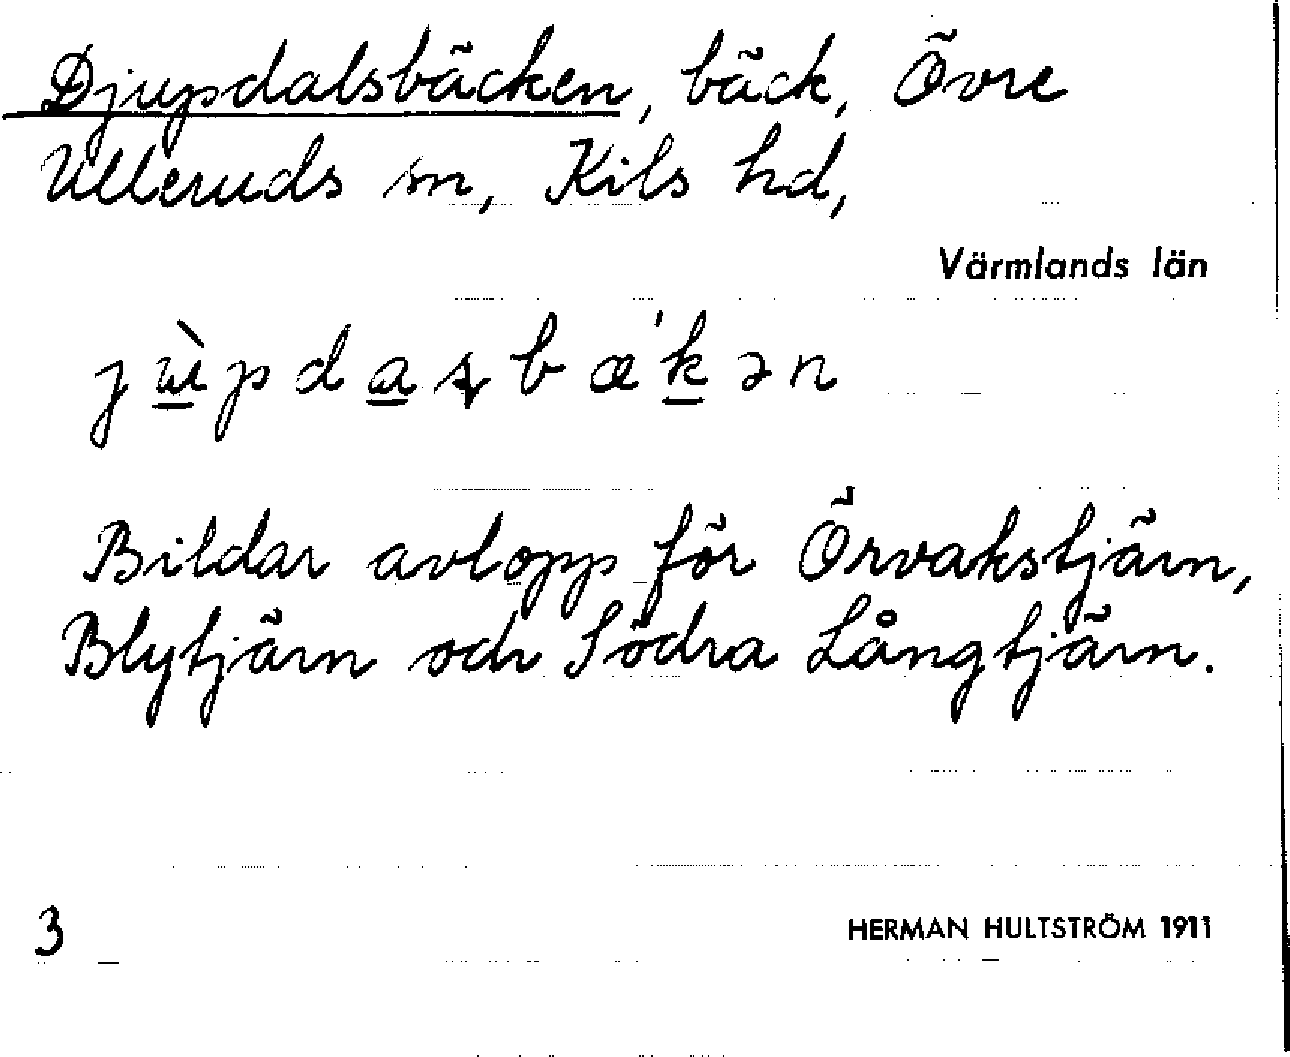 Djupdalsbäcken, bäck, Övre
Ulleruds sn, Kils hd,
Värmlands län
Bildar avlopp för Örvakstjärn,
Blytjärn och Södra Långtjärn.
3
HERMAN HULTSTRÖM 1911